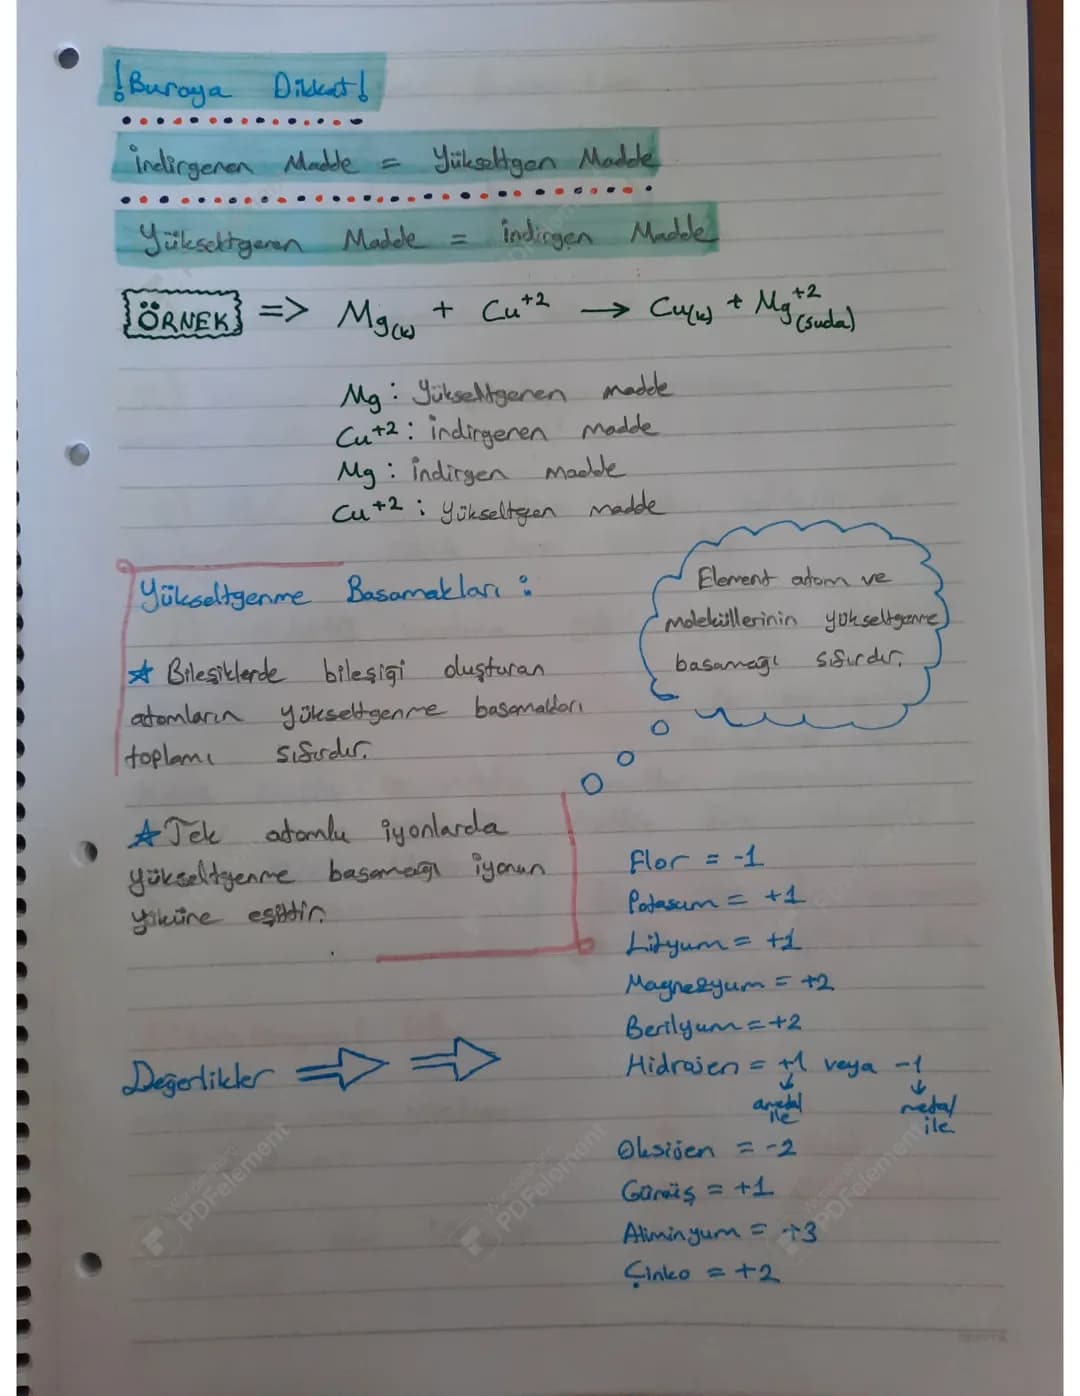 !Buraya Dikkat!
İndirgenen Madde = Yükseltgen Madde
Yükseltgenen Madde = İndirgen Madde
ÖRNEK => Mg(k) + Cu+2 → Cu(k) + Mg+2(suda)
Mg : Yükseltgenen madde
Cu+2 : İndirgenen madde
Mg : İndirgen madde
Cu+2 : Yükseltgen madde
Yükseltgenme Basamakları :
Element atom ve
moleküllerinin yükseltgenme
basamağı sıfırdır.
★ Bileşiklerde bileşiği oluşturan
atomların yükseltgenme basamakları
toplamı sıfırdır.
★ Tek atomlu iyonlarda
yükseltgenme basamağı iyonun
yüküne eşittir.
Değerlikler
Flor = -1
Potasum = +1
Lityum = +1
Magnezyum = +2
Berilyum = +2
Hidrojen = +1 veya -1
ametal ile
metal ile
Oksijen = -2
Gümüş = +1
Aliminyum = +3
Çinko = +2
Wondershare PDFelement
Wondershare PDFelement
Wondershare PDFelement